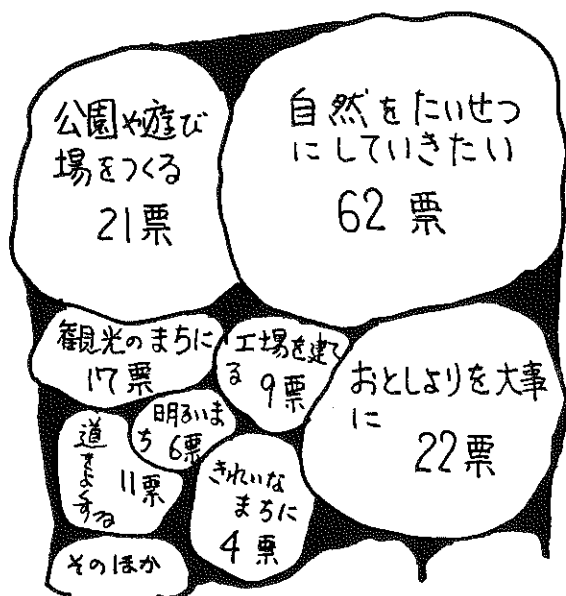 公園や遊び
場をつくる
21票
自然をたいせつ
にしていきたい
62票
観光のまちに
17票
工場を建て
る 9票
おとしよりを大事
に
22票
明るいま
ち 6票
道をよくする
11票
きれいな
まちに
4票
そのほか